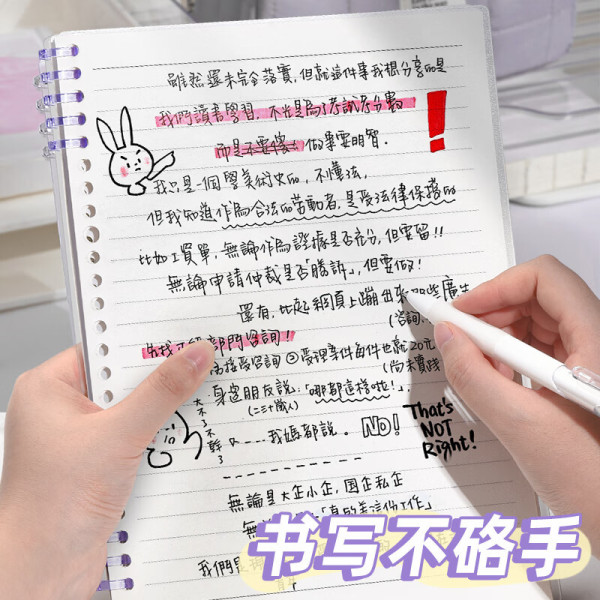 雖然還未完全落實,但就這件事我想分享的是
我們讀書學習,不光是為了考試考分數
而是不要傻 做事要明智.
我只是一個學美術史的,不懂法,
但我知道作為合法的勞動者,是受法律保護的
比如工資單,無論作為證據是否充分,但要留!!
無論申請仲裁是否「勝訴」,但要做!
還有,比起網頁上蹦出來那些廣告
(咨詢
先找正 部門咨詢!
接受咨詢 ②受理案件 每件也就20元
(尚未實踐
大不了不幹了
身邊朋友說:「哪都這樣啦!」,
(二三十歲人)
又......我媽都說.
NO!
That's
NOT
Right!
無論是大企小企,國企私企
我們
书写不硌手